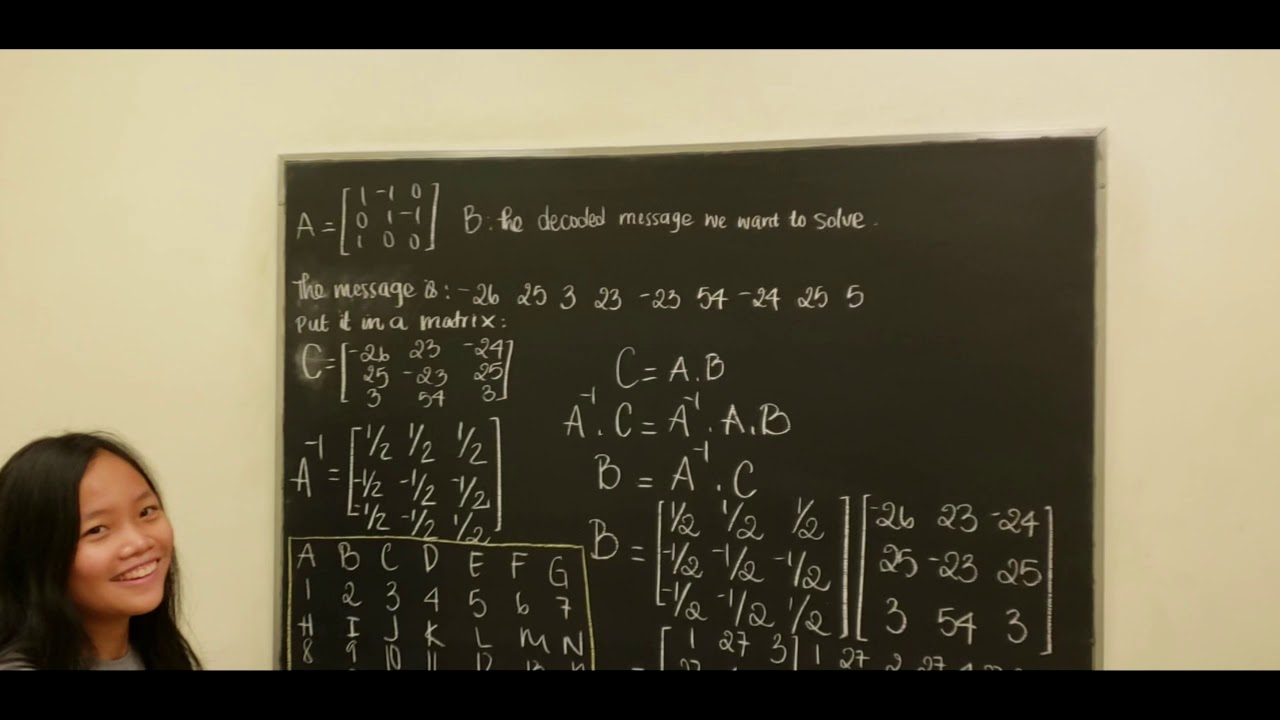 A = [1 -1 0
0 1 -1
1 0 0] B: the decoded message we want to solve.
The message is: -26 25 3 23 -23 54 -24 25 5
Put it in a matrix:
C = [-26 23 -24
25 -23 25
3 54 3]
C = A.B
A⁻¹.C = A⁻¹.A.B
B = A⁻¹.C
A⁻¹ = [1/2 1/2 1/2
-1/2 -1/2 -1/2
-1/2 -1/2 1/2]
B = [1/2 1/2 1/2
-1/2 -1/2 -1/2
-1/2 -1/2 1/2] [-26 23 -24
25 -23 25
3 54 3]
= [1 27 3] 1 27
A B C D E F G
1 2 3 4 5 6 7
H I J K L M N
8 9 10 11 12 13